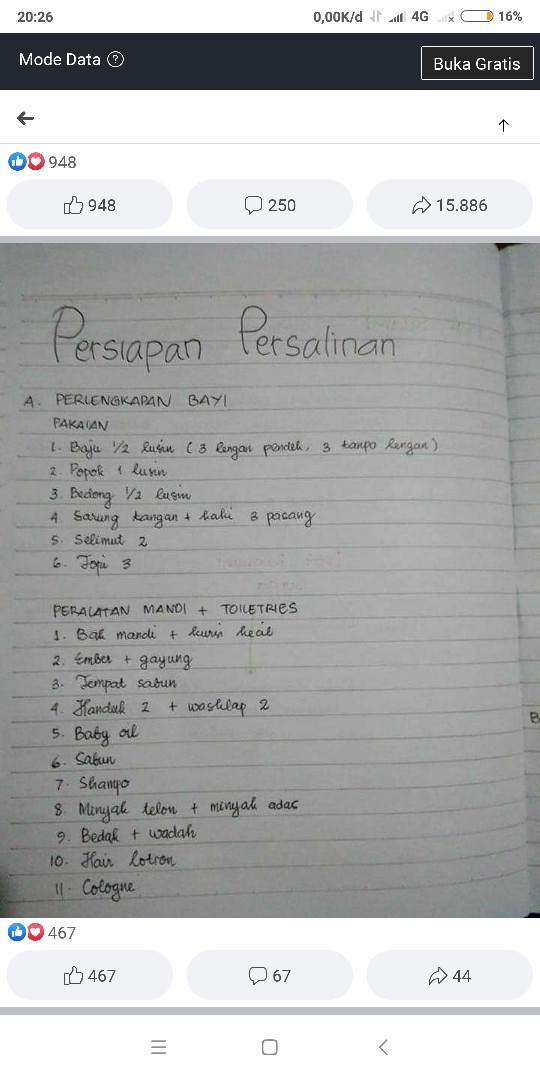 20:26 0,00K/d 4G 16%
Mode Data ? Buka Gratis
948
948 250 15.886
Persiapan Persalinan
A. PERLENGKAPAN BAYI
PAKAIAN
1. Baju 1/2 lusin (3 lengan pendek, 3 tanpa lengan)
2. Popok 1 lusin
3. Bedong 1/2 lusin
4. Sarung tangan + kaki 3 pasang
5. Selimut 2
6. Topi 3
PERALATAN MANDI + TOILETRIES
1. Bak mandi + kursi kecil
2. Ember + gayung
3. Tempat sabun
4. Handuk 2 + washlap 2
B
5. Baby oil
6. Sabun
7. Shampo
8. Minyak telon + minyak adas
9. Bedak + wadah
10. Hair lotion
11. Cologne
467
467 67 44